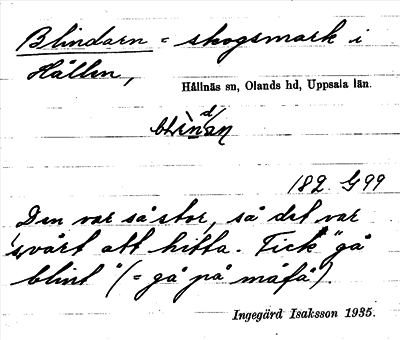 Blindarn = skogsmark i
Hållen,
Hållnäs sn, Olands hd, Uppsala län.
182 G99
Den var så stor, så det var
svårt att hitta. Fick "gå
blint" (= gå på måfå).
Ingegärd Isaksson 1935.